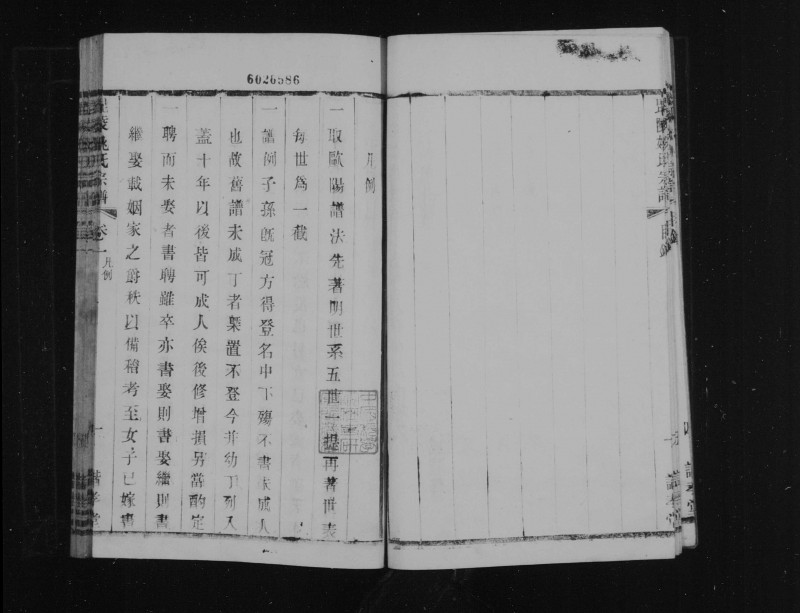 6020586
凡例
一取歐陽譜法先著明世系五世一提再著世表
每世爲一截
一譜例子孫既冠方得登名中下殤不書未成人
也故舊譜未成丁者槩置不登今并幼丁列入
蓋十年以後皆可成人俟後修增損另當酌定
一聘而未娶者書聘雖卒亦書娶則書娶繼則書
繼娶載姻家之爵秩以備稽考至女子已嫁書
毘陵姚氏宗譜 卷一 凡例 一